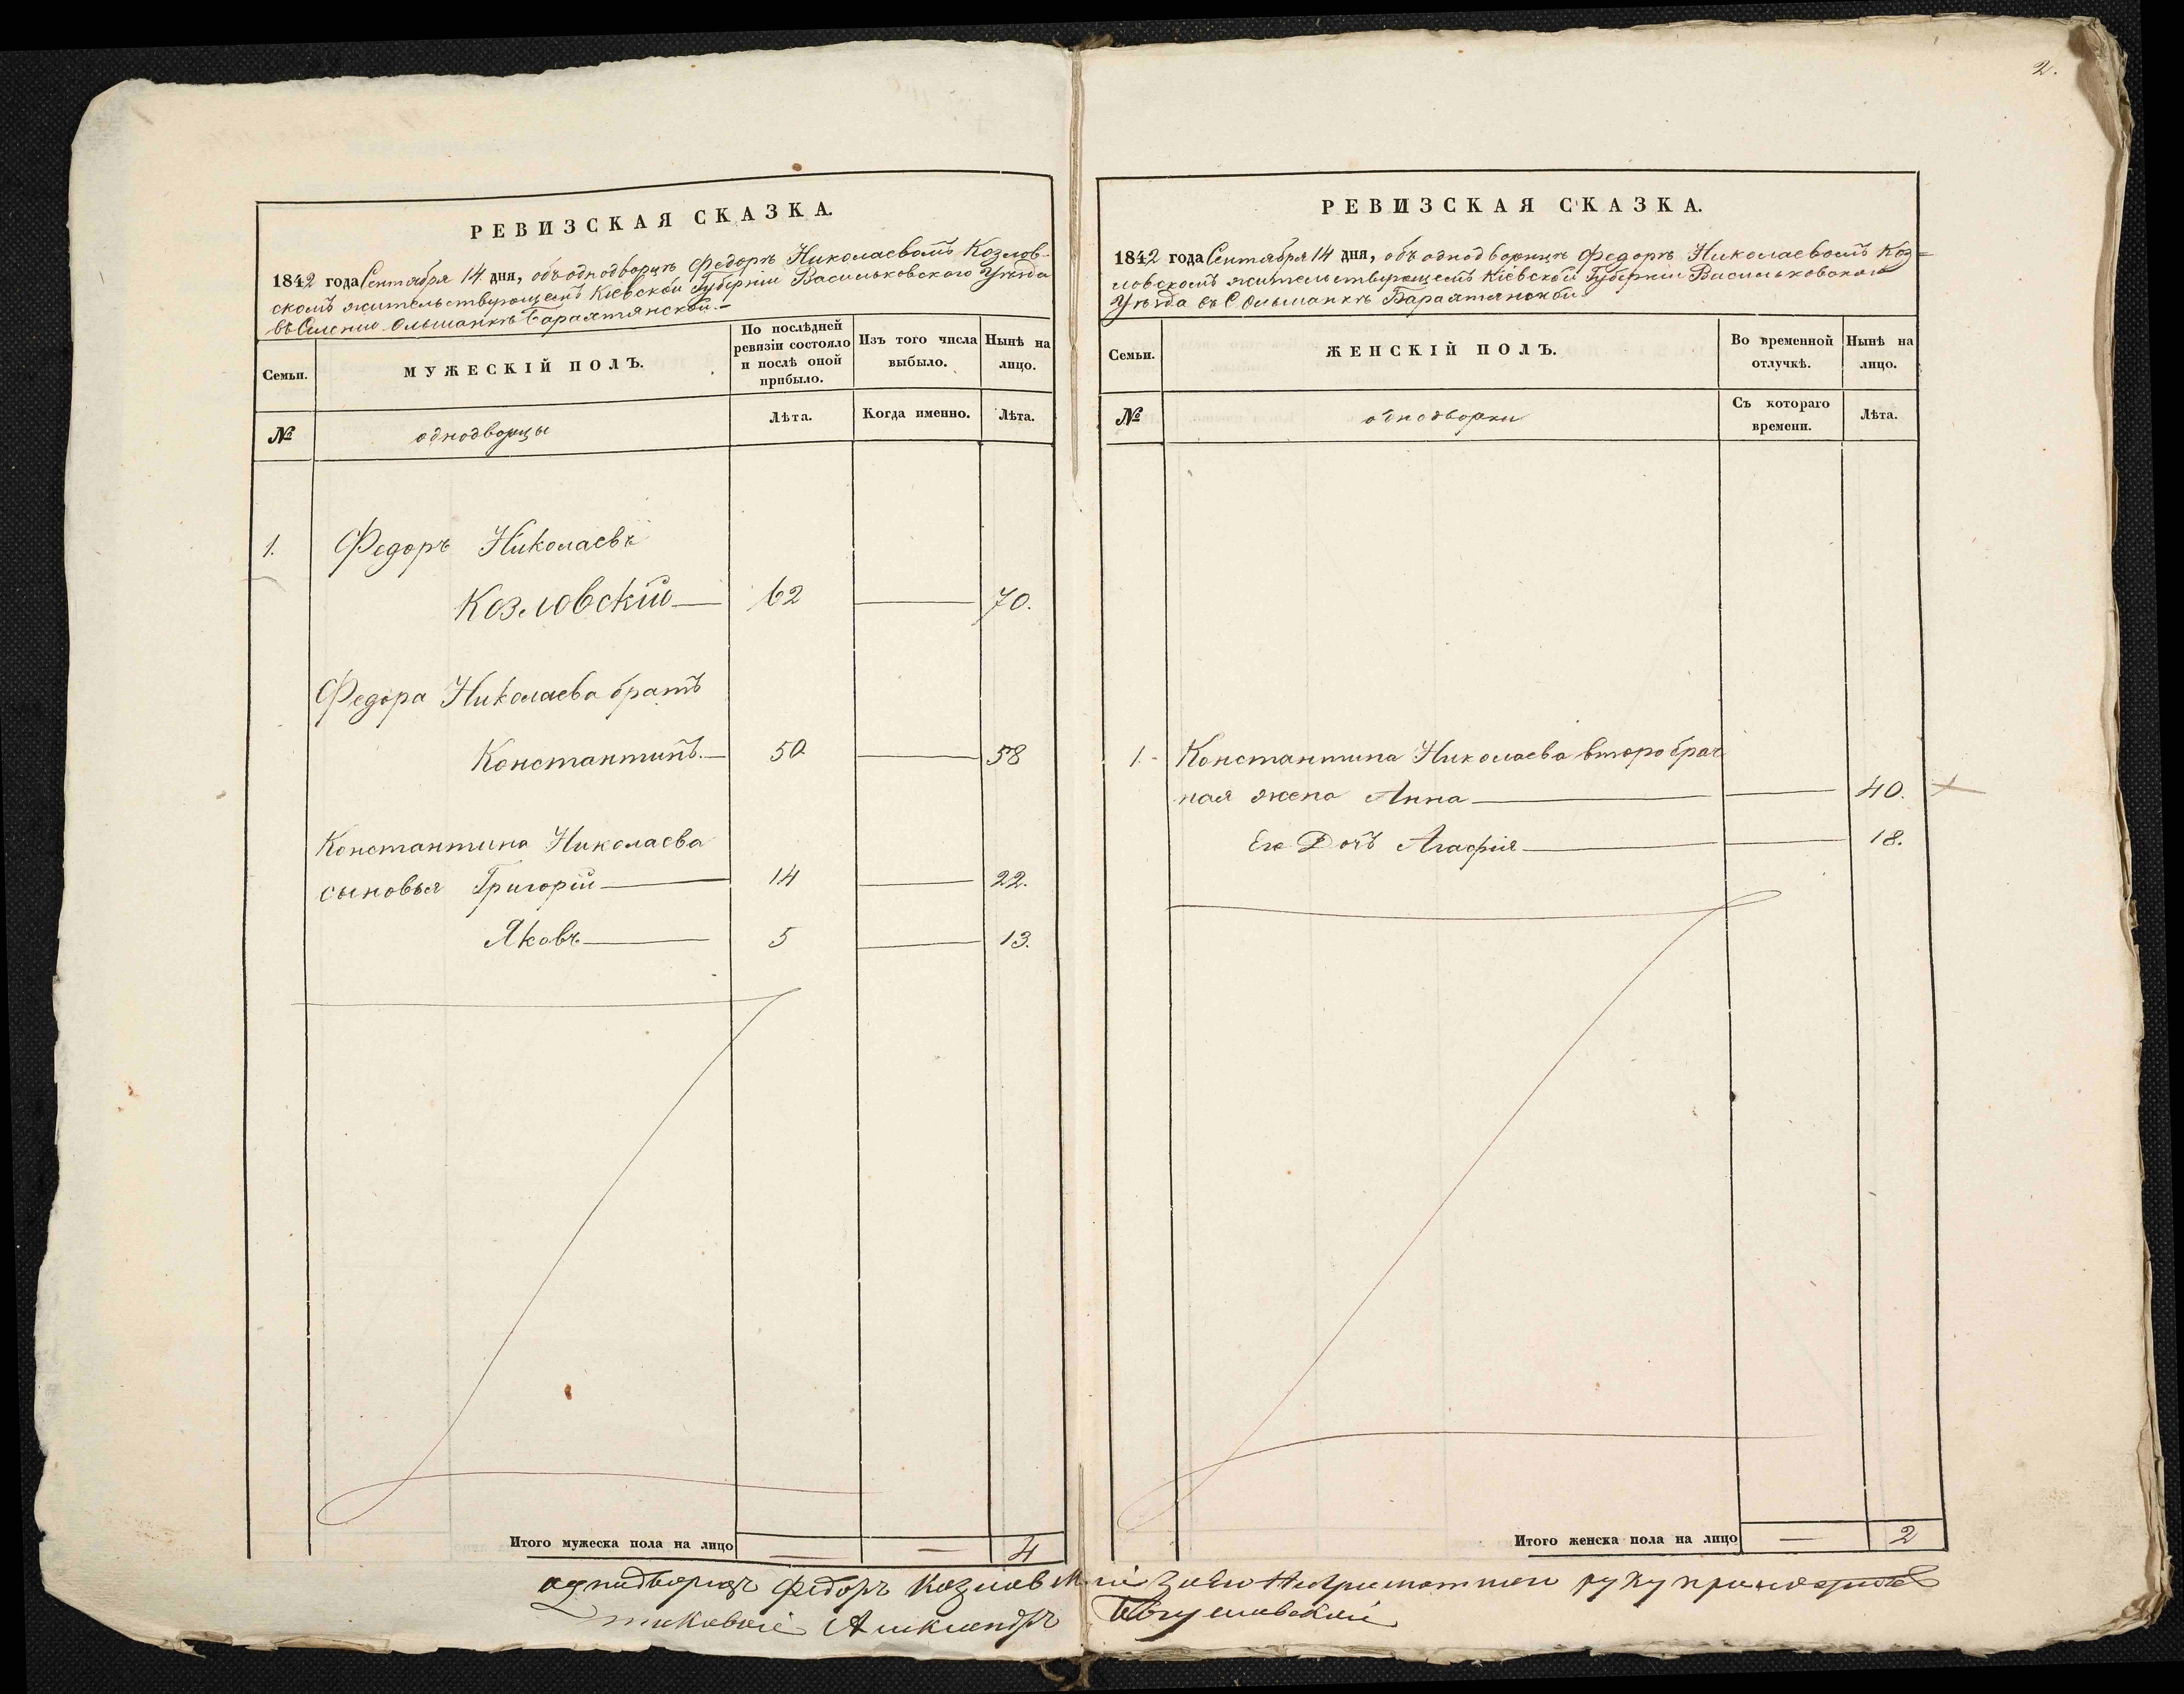 2.
РЕВИЗСКАЯ СКАЗКА.
1842 года Сентября 14 дня, объ однодворцѣ Федорѣ Николаевомъ Козлов-
скомъ жительствующемъ Кіевской Губерніи Васильковскаго Уѣзда
въ Селеніи Ольшанкѣ Бараятянской.-
Семьи.
МУЖЕСКІЙ ПОЛЪ.
По послѣдней
ревизіи состояло
и послѣ оной
прибыло.
Изъ того числа
выбыло.
Нынѣ на
лицо.
№
однодворцы
Лѣта.
Когда именно.
Лѣта.
1. Федоръ Николаевъ
Козловскій — 62 — 70.
Федора Николаева братъ
Константинъ.— 50 — 58
Константина Николаева
сыновья Григорій — 14 — 22.
Яковъ — 5 — 13.
Итого мужеска пола на лицо — — 4
РЕВИЗСКАЯ СКАЗКА.
1842 года Сентября 14 дня, объ однодворцѣ Федорѣ Николаевомъ Коз=
ловскомъ жительствующемъ Кіевской Губерніи Васильковскаго
Уѣзда въ С Ольшанкѣ Бараятянской
Семьи.
ЖЕНСКІЙ ПОЛЪ.
Во временной
отлучкѣ.
Нынѣ на
лицо.
№
однодворки
Съ котораго
времени.
Лѣта.
1.- Константина Николаева второбрач
ная жена Анна — — 40.
Его Дочь Агафія — — 18.
Итого женска пола на лицо — 2
однодворецъ Федоръ Козловскій
Александръ